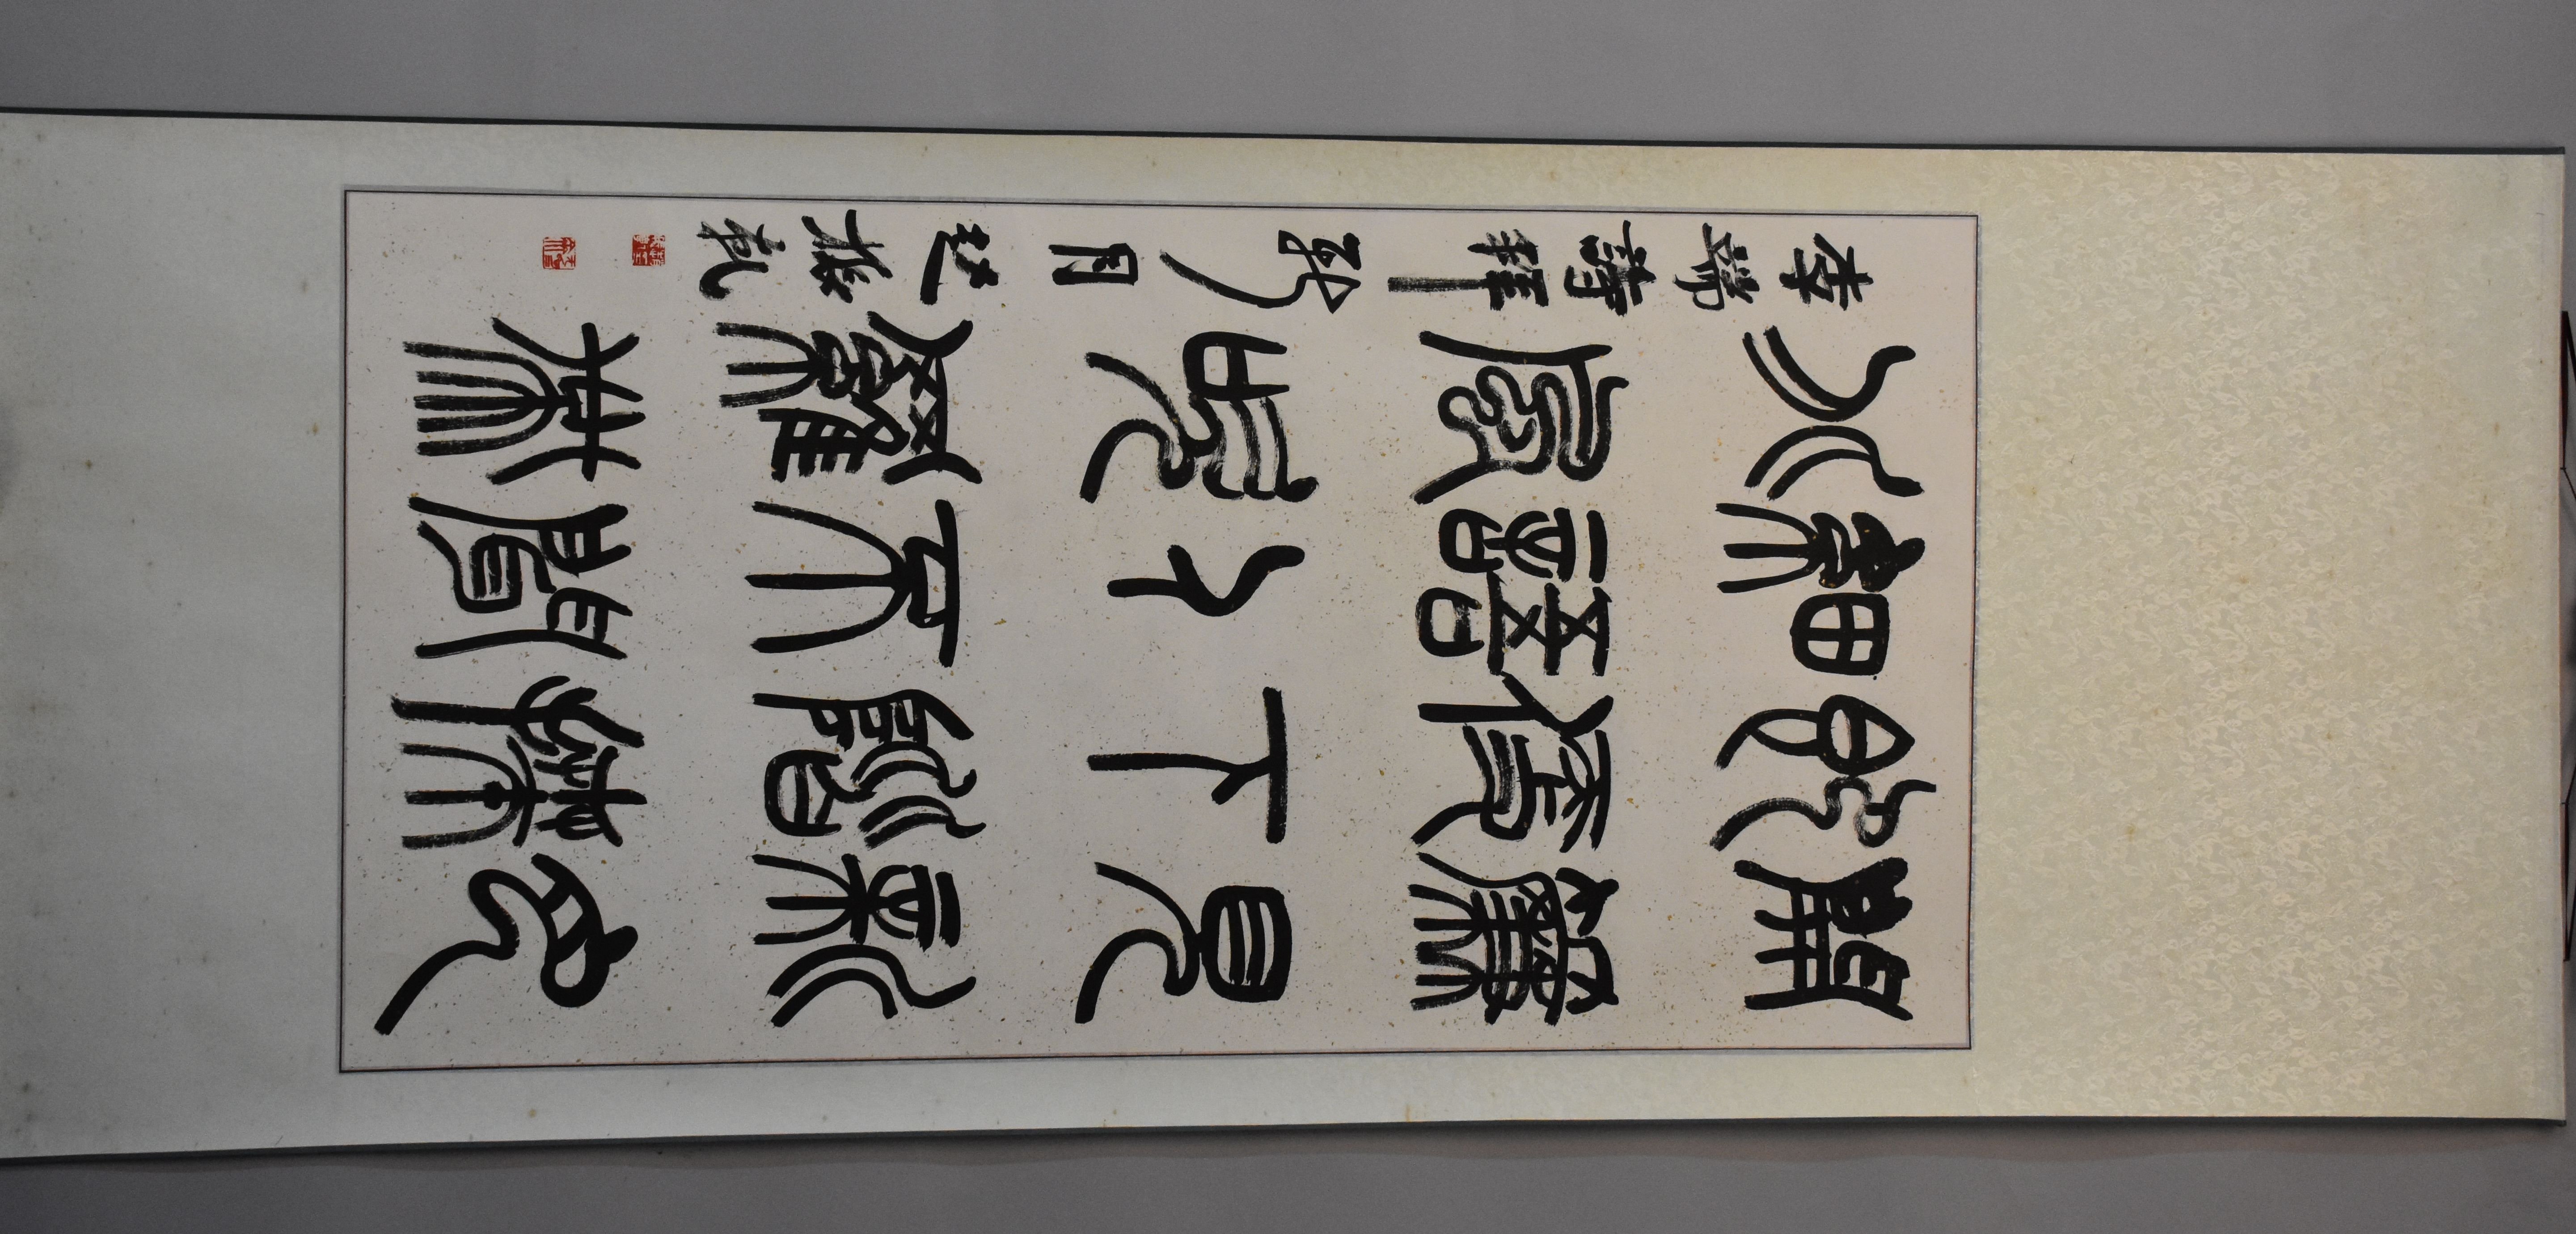 開簾見新月
即便下階拜
細語人不聞
北風吹羅帶
李端詩拜新月 趙振